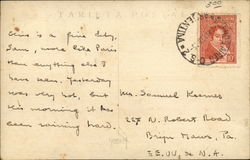 TARJETA POSTAL
This is a fine city,
Sam, more like Paris
than anything else I
have seen. Yesterday
was very hot, but
this morning it has
been raining hard.
Mr. Samuel
N. Robert Road
Bryn Mawr, Pa.
EE. UU. de N. A.
ARGENTINA